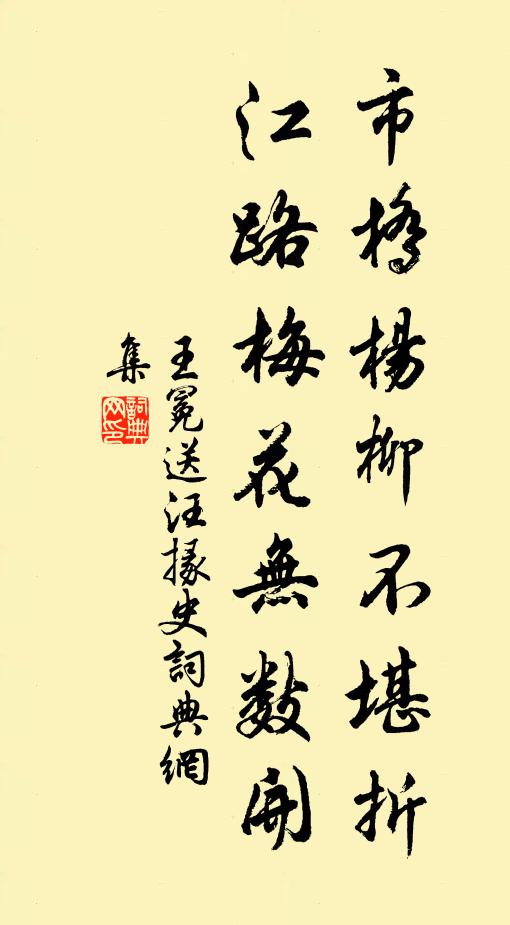 市橋楊柳不堪折
江路梅花無數開
王冕送汪掾史詞典網
集
詞典網印